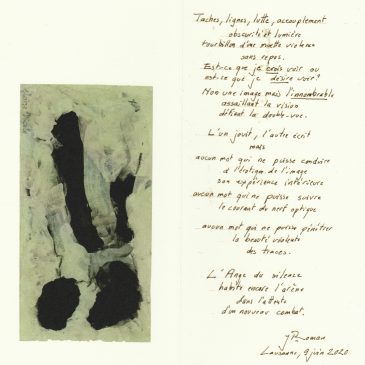 Taches, lignes, lutte, accouplement
obscurité et lumière
tourbillon d'une muette violence
sans repos.
Est-ce que je crois voir ou
est-ce que je désire voir ?
Non une image mais l'innombrable
assaillant la vision
défiant la double-vue.
L'un jouit, l'autre écrit
mais
aucun mot qui ne puisse conduire
à l'image
son expérience intérieure
aucun mot qui ne puisse suivre
le courant du nerf optique
aucun mot qui ne puisse pénétrer
la beauté violente
des traces.
L'Ange du silence
habite encore l'arène
dans l'attente
d'un nouveau combat.
Roman
Lausanne, 9 juin 2020